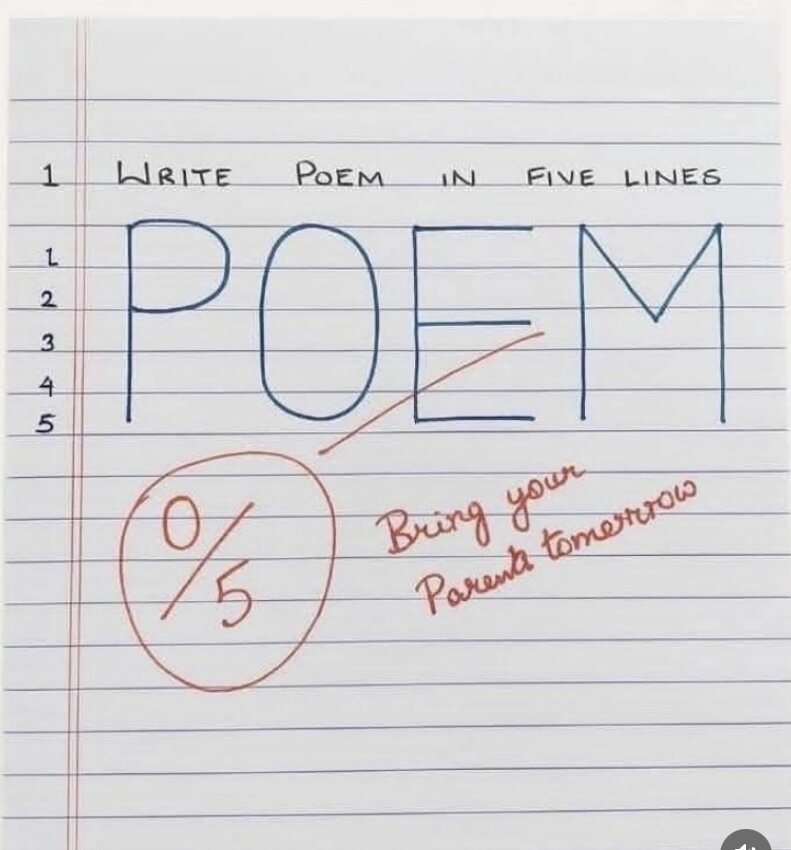 1 WRITE POEM IN FIVE LINES
1
2
3
4
5
POEM
0/5
Bring your
Parents tomorrow